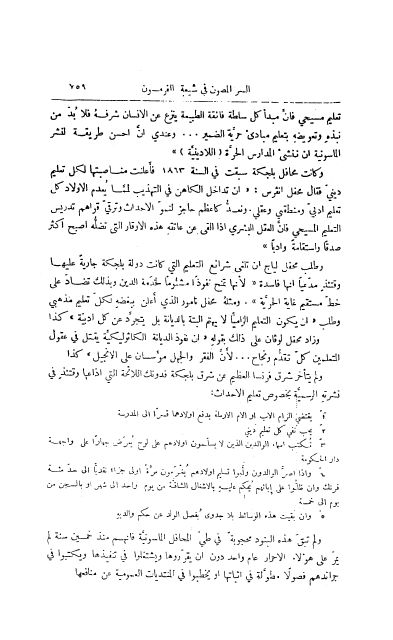 السر المصون في شيعة الفرمسون ٧٥٩
تعليم مسيحي فانَّ مبدأ كل سلطة فائقة الطبيعة ينزع عن الانسان شرفهُ فلا بدَّ من
نبذهِ وتعويضهِ بتعليم مبادئ حرية الضمير ... وعندي انَّ احسن طريقة لنشر
الماسونية ان تنشئ المدارس الحرَّة ( اللادينيَّة ) »
وكانت محافل بلجكة سبقت في السنة ١٨٦٣ فأعلنت مناصبتها لكل تعليم
دينيّ فقال محفل انڤرس : « ان تداخل الكاهن في التهذيب ممَّا يُعدم الاولاد كل
تعليم ادبيّ ومنطقي وعقلي . ونعدُّ كأعظم حاجز لنموّ الاحداث وترقّي قواهم تدريس
التعليم المسيحي فانَّ العقل البشري اذا القى عن عاتقهِ هذه الاوقار التي تضلُّهُ اصبح اكثر
صدقًا واستقامةً وادبًا »
وطلب محفل لياج ان تلغى شرائع التعليم التي كانت دولة بلجكة جارية عليهـا
وتنتذر مدَّعيًا انها فاسدة « لأنها تمنح نفوذًا مشئومًا لخدمة الدين وبذلك تضادّ على
خطّ مستقيم غاية الحريَّة » . ومثلهُ محفل نامور الذي أعلن ببغضهِ لكلّ تعليم مذهبي
وطلب « ان يكون التعليم الزاميًّا لا يهتم البتة بالديانة بل يتجرَّد عن كل ادبيَّة » كذا
وزاد محفل لوڤان على ذلك بقولهِ « ان نفوذ الديانة الكاثوليكيَّة يقتل في عقول
المتعلّمين كلّ تقدُّم ونجاح ... لأنَّ الفقر والجهل مؤسَّسان على الانجيل » كذا
ولم يتأخر شرق فرنسا العظيم عن شرق بلجكة فدونك اللائحة التي اذاعها وقتئذٍ في
نشرتهِ الرسميَّة بخصوص تعليم الاحداث :
١ً يقتضي الزام الاب او الام الارملة بدفع اولادهما قسرًا الى المدرسة
٢ً يجب نفي كل تعليم ديني
٣ً تُكتب اسماء الوالدين الذين لا يسلّمون اولادهم على لوح يُعرَض جهارًا على واجهة
دار الحكومة
٤ً واذا اصرَّ الوالدون وأبوا تسليم اولادهم يُغرَّمون مرَّة اولى جزاء نقديًّا الى حدّ مئة
فرنك وان ظلّوا على إبائهم يُحكم عليهم بالاشغال الشاقَّة من يوم واحد الى شهر او بالسجن من
يوم الى خمسة
٥ً وان بقيت هذه الوسائط بلا جدوى يُفصل الولد عن حكم والديهِ
ولم تبقَ هذه البنود محجوبة في طيّ المحافل الماسونيَّة فانهم منذ خمسين سنة لم
يمرَّ على هؤلاء الاحرار عام واحد دون ان يقرّروها ويشتغلوا في تنفيذها ويكتبوا في
جرائدهم فصولًا مطوَّلة في اثباتها او يخطبوا في المنتديات العمومية عن منافعها